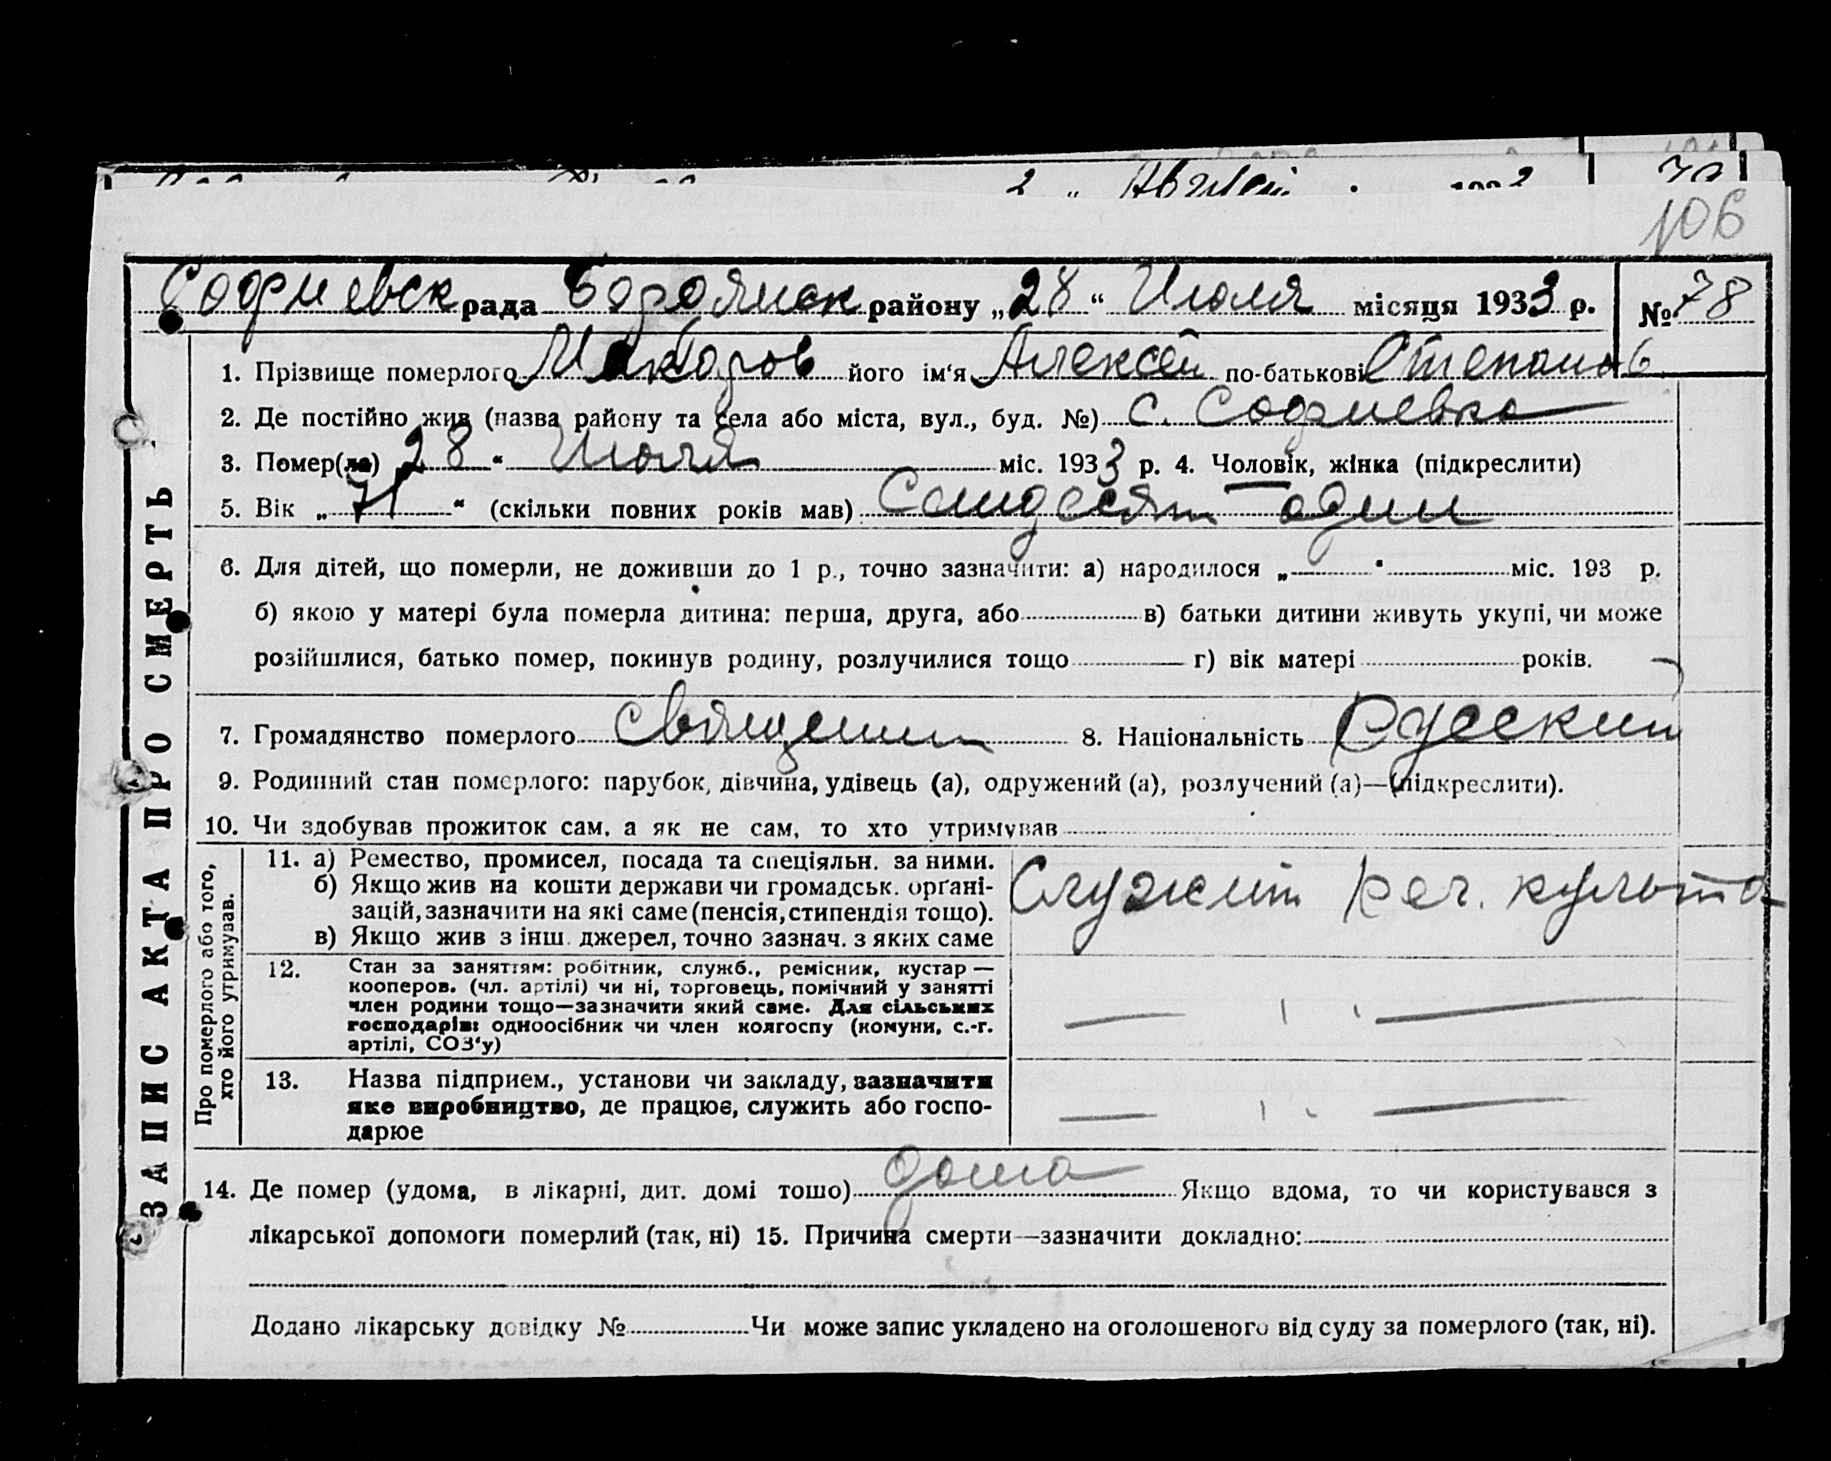 2 " Августа
106
Софиевск рада Бородянск району „28“ Июля місяця 1933 р. № 78
ЗАПИС АКТА ПРО СМЕРТЬ
1. Прізвище померлого Макаров його ім'я Алексей по-батькові Степанов
2. Де постійно жив (назва району та села або міста, вул., буд. №) с. Софиевка
3. Помер(ла) 28 “ Июля міс. 1933 р. 4. Чоловік, жінка (підкреслити)
5. Вік „ 71 “ (скільки повних років мав) Семдесят один
6. Для дітей, що померли, не доживши до 1 р., точно зазначити: а) народилося „ “ міс. 193 р.
б) якою у матері була померла дитина: перша, друга, або в) батьки дитини живуть укупі, чи може
розійшлися, батько помер, покинув родину, розлучилися тощо г) вік матері років.
7. Громадянство померлого Священни 8. Національність Русский
9. Родинний стан померлого: парубок, дівчина, удівець (а), одружений (а), розлучений (а)—(підкреслити).
10. Чи здобував прожиток сам, а як не сам, то хто утримував
Про померлого або того,
хто його утримував.
11. а) Ремество, промисел, посада та спеціяльн. за ними.
б) Якщо жив на кошти держави чи громадськ. орґані-
зацій, зазначити на які саме (пенсія, стипендія тощо).
в) Якщо жив з інш. джерел, точно зазнач. з яких саме
Служит рел. культа
12. Стан за заняттям: робітник, служб., ремісник, кустар —
кооперов. (чл. артілі) чи ні, торговець, помічний у занятті
член родини тощо—зазначити який саме. Для сільських
господарів: одноосібник чи член колгоспу (комуни, с.-г.
артілі, СОЗ'у)
— " —
13. Назва підприєм., установи чи закладу, зазначити
яке виробництво, де працює, служить або госпо-
дарює
— " —
14. Де помер (удома, в лікарні, дит. домі тощо) дома Якщо вдома, то чи користувався з
лікарської допомоги померлий (так, ні) 15. Причина смерти—зазначити докладно:
Додано лікарську довідку № Чи може запис укладено на оголошеного від суду за померлого (так, ні).